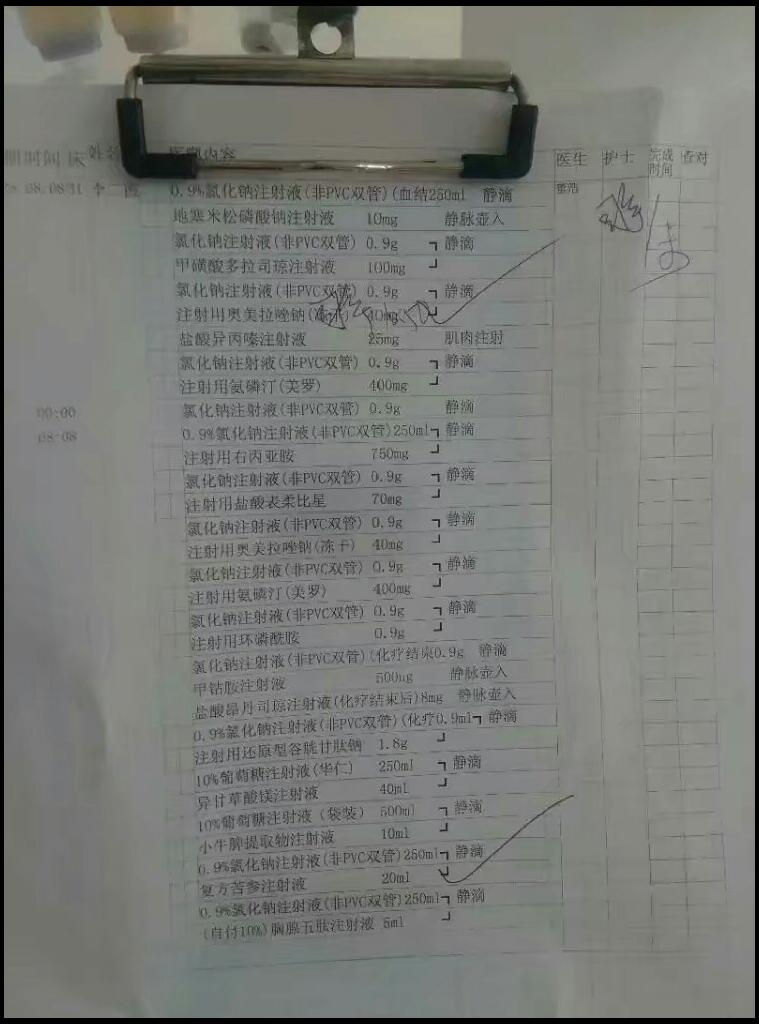 期时间 床 姓名 医嘱内容 医生 护士 完成时间 查对
08:08 31 李二 0.9%氯化钠注射液(非PVC双管)(血结250ml 静滴
地塞米松磷酸钠注射液 10mg 静脉壶入
氯化钠注射液(非PVC双管) 0.9g ┓静滴
甲磺酸多拉司琼注射液 100mg ┛
氯化钠注射液(非PVC双管) 0.9g ┓静滴
注射用奥美拉唑钠 40mg ┛
盐酸异丙嗪注射液 25mg 肌肉注射
氯化钠注射液(非PVC双管) 0.9g ┓静滴
注射用氨磷汀(美罗) 400mg ┛
00:00 氯化钠注射液(非PVC双管) 0.9g 静滴
08:08 0.9%氯化钠注射液(非PVC双管)250ml┓静滴
注射用右丙亚胺 750mg ┛
氯化钠注射液(非PVC双管) 0.9g ┓静滴
注射用盐酸表柔比星 70mg ┛
氯化钠注射液(非PVC双管) 0.9g ┓静滴
注射用奥美拉唑钠(冻干) 40mg ┛
氯化钠注射液(非PVC双管) 0.9g ┓静滴
注射用氨磷汀(美罗) 400mg ┛
氯化钠注射液(非PVC双管) 0.9g ┓静滴
注射用环磷酰胺 0.9g ┛
氯化钠注射液(非PVC双管)(化疗结束0.9g 静滴
甲钴胺注射液 500ug 静脉壶入
盐酸昂丹司琼注射液(化疗结束后)8mg 静脉壶入
0.9%氯化钠注射液(非PVC双管)(化疗0.9ml┓静滴
注射用还原型谷胱甘肽钠 1.8g ┛
10%葡萄糖注射液(华仁) 250ml ┓静滴
异甘草酸镁注射液 40ml ┛
10%葡萄糖注射液(袋装) 500ml ┓静滴
小牛脾提取物注射液 10ml ┛
0.9%氯化钠注射液(非PVC双管)250ml┓静滴
复方苦参注射液 20ml ┛
0.9%氯化钠注射液(非PVC双管)250ml┓静滴
(自付10%)胸腺五肽注射液 5ml ┛